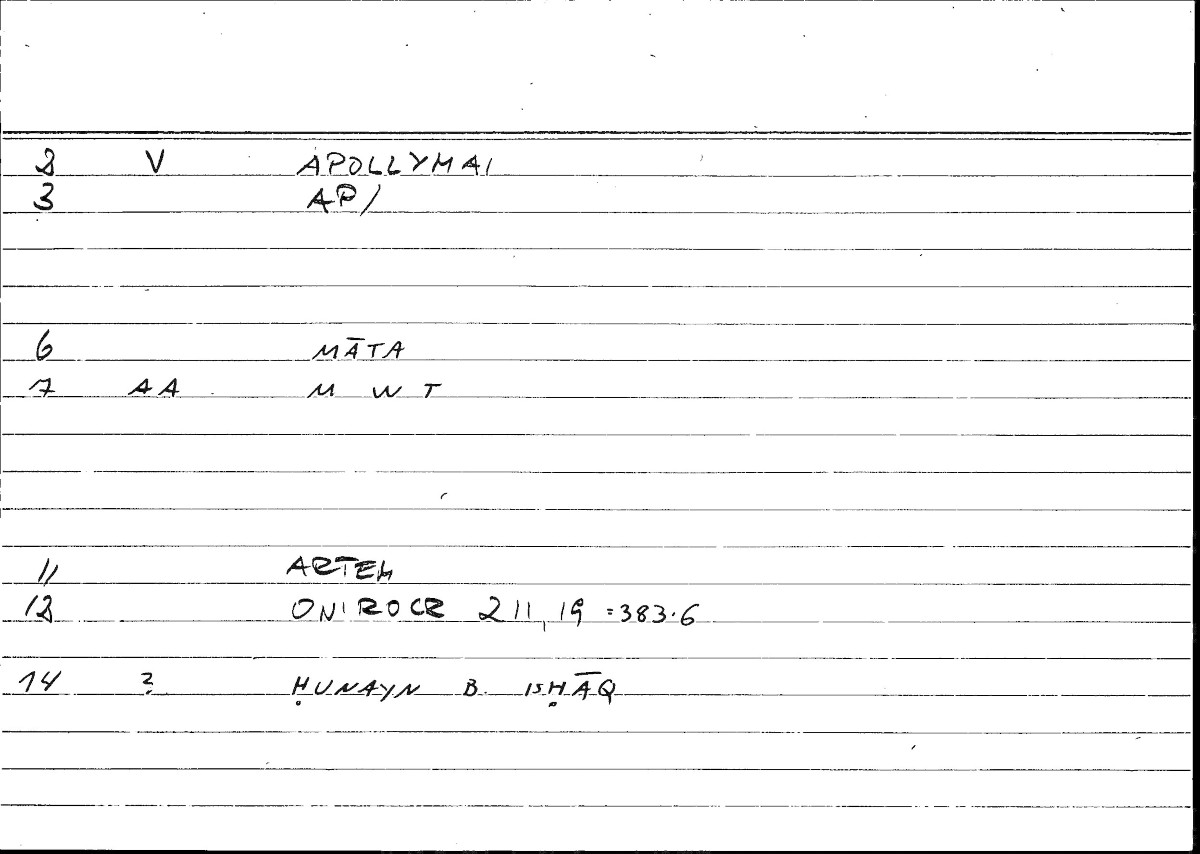 2 V APOLLYMAI
3 AP/
6 MĀTA
7 AA M W T
11 ARTEM
12 ONIROCR 211,19 =383.6
14 ? ḤUNAYN B. ISḤĀQ